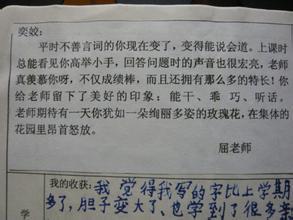 奕姣:
平时不善言词的你现在变了,变得能说会道。上课时
总能看见你高举小手,回答问题时的声音也很宏亮,老师
真羡慕你呀,不仅成绩棒,而且还拥有那么多的特长!你
给老师留下了美好的印象:能干、乖 巧、听话。
老师期待有一天你犹如一朵绚丽多姿的玫瑰花,在集体的
花园里昂首怒放。
屈老师
学
我的收获:我觉得我写的字比上学期
多了,胆子变大了、也学到了很多